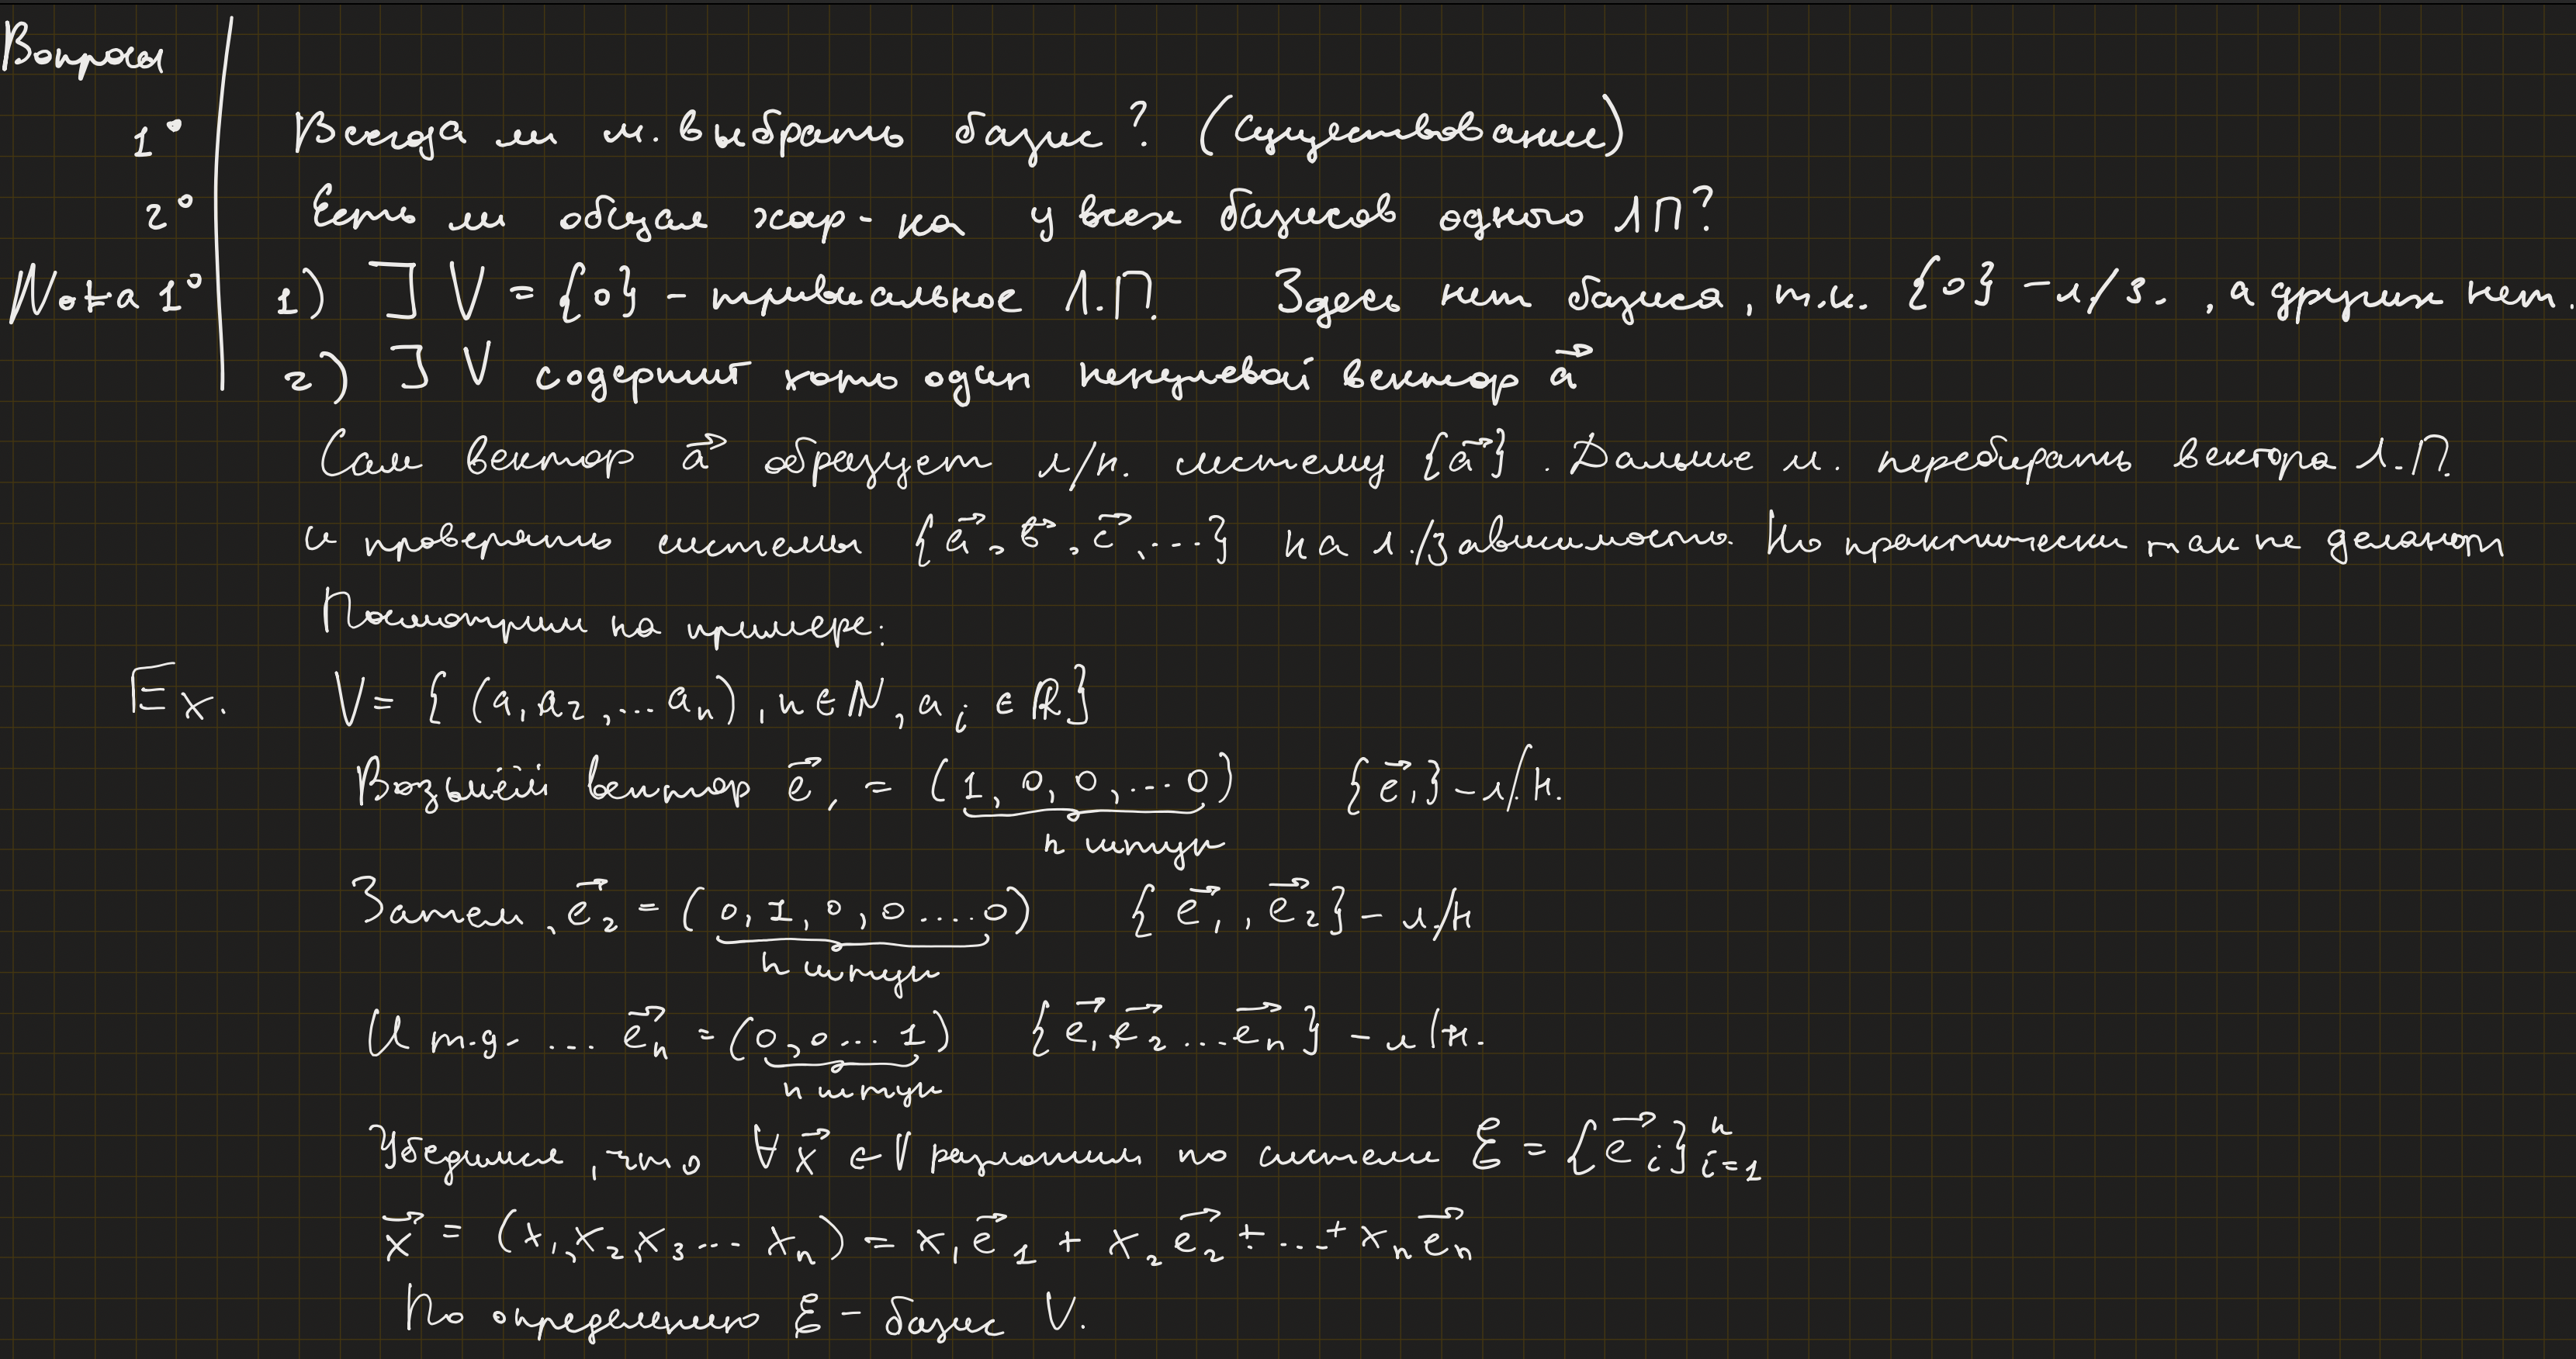 Вопросы
1° Всегда ли м. выбрать базис? (существование)
2° Есть ли общая хар-ка у всех базисов одного ЛП?
Nota 1° 1) ] V = {0} - тривиальное Л.П. Здесь нет базиса, т.к. {0} - л/з. , а других нет.
2) ] V содержит хоть один ненулевой вектор a⃗
Сам вектор a⃗ образует л/н. систему {a⃗}. Дальше м. перебирать вектора Л.П.
и проверять системы {a⃗, b⃗, c⃗, ...} на л./зависимость. Но практически так не делают
Посмотрим на примере:
Ex. V = { (a₁ a₂, ... aₙ), n ∈ ℕ, aᵢ ∈ ℝ}
Возьмём вектор e⃗₁ = (1, 0, 0, ... 0) {e⃗₁} - л/н.
n штук
Затем, e⃗₂ = (0, 1, 0, 0 .... 0) { e⃗₁, e⃗₂} - л/н
n штук
И т.д. ... e⃗ₙ = (0, 0 ... 1) {e⃗₁, e⃗₂ ... e⃗ₙ} - л/н.
n штук
Убедимся, что ∀ x⃗ ∈ V разложим по системе ℰ = {e⃗ᵢ}ⁿᵢ₌₁
x⃗ = (x₁, x₂, x₃ ... xₙ) = x₁ e⃗₁ + x₂ e⃗₂ + ... + xₙ e⃗ₙ
По определению ℰ - базис V.